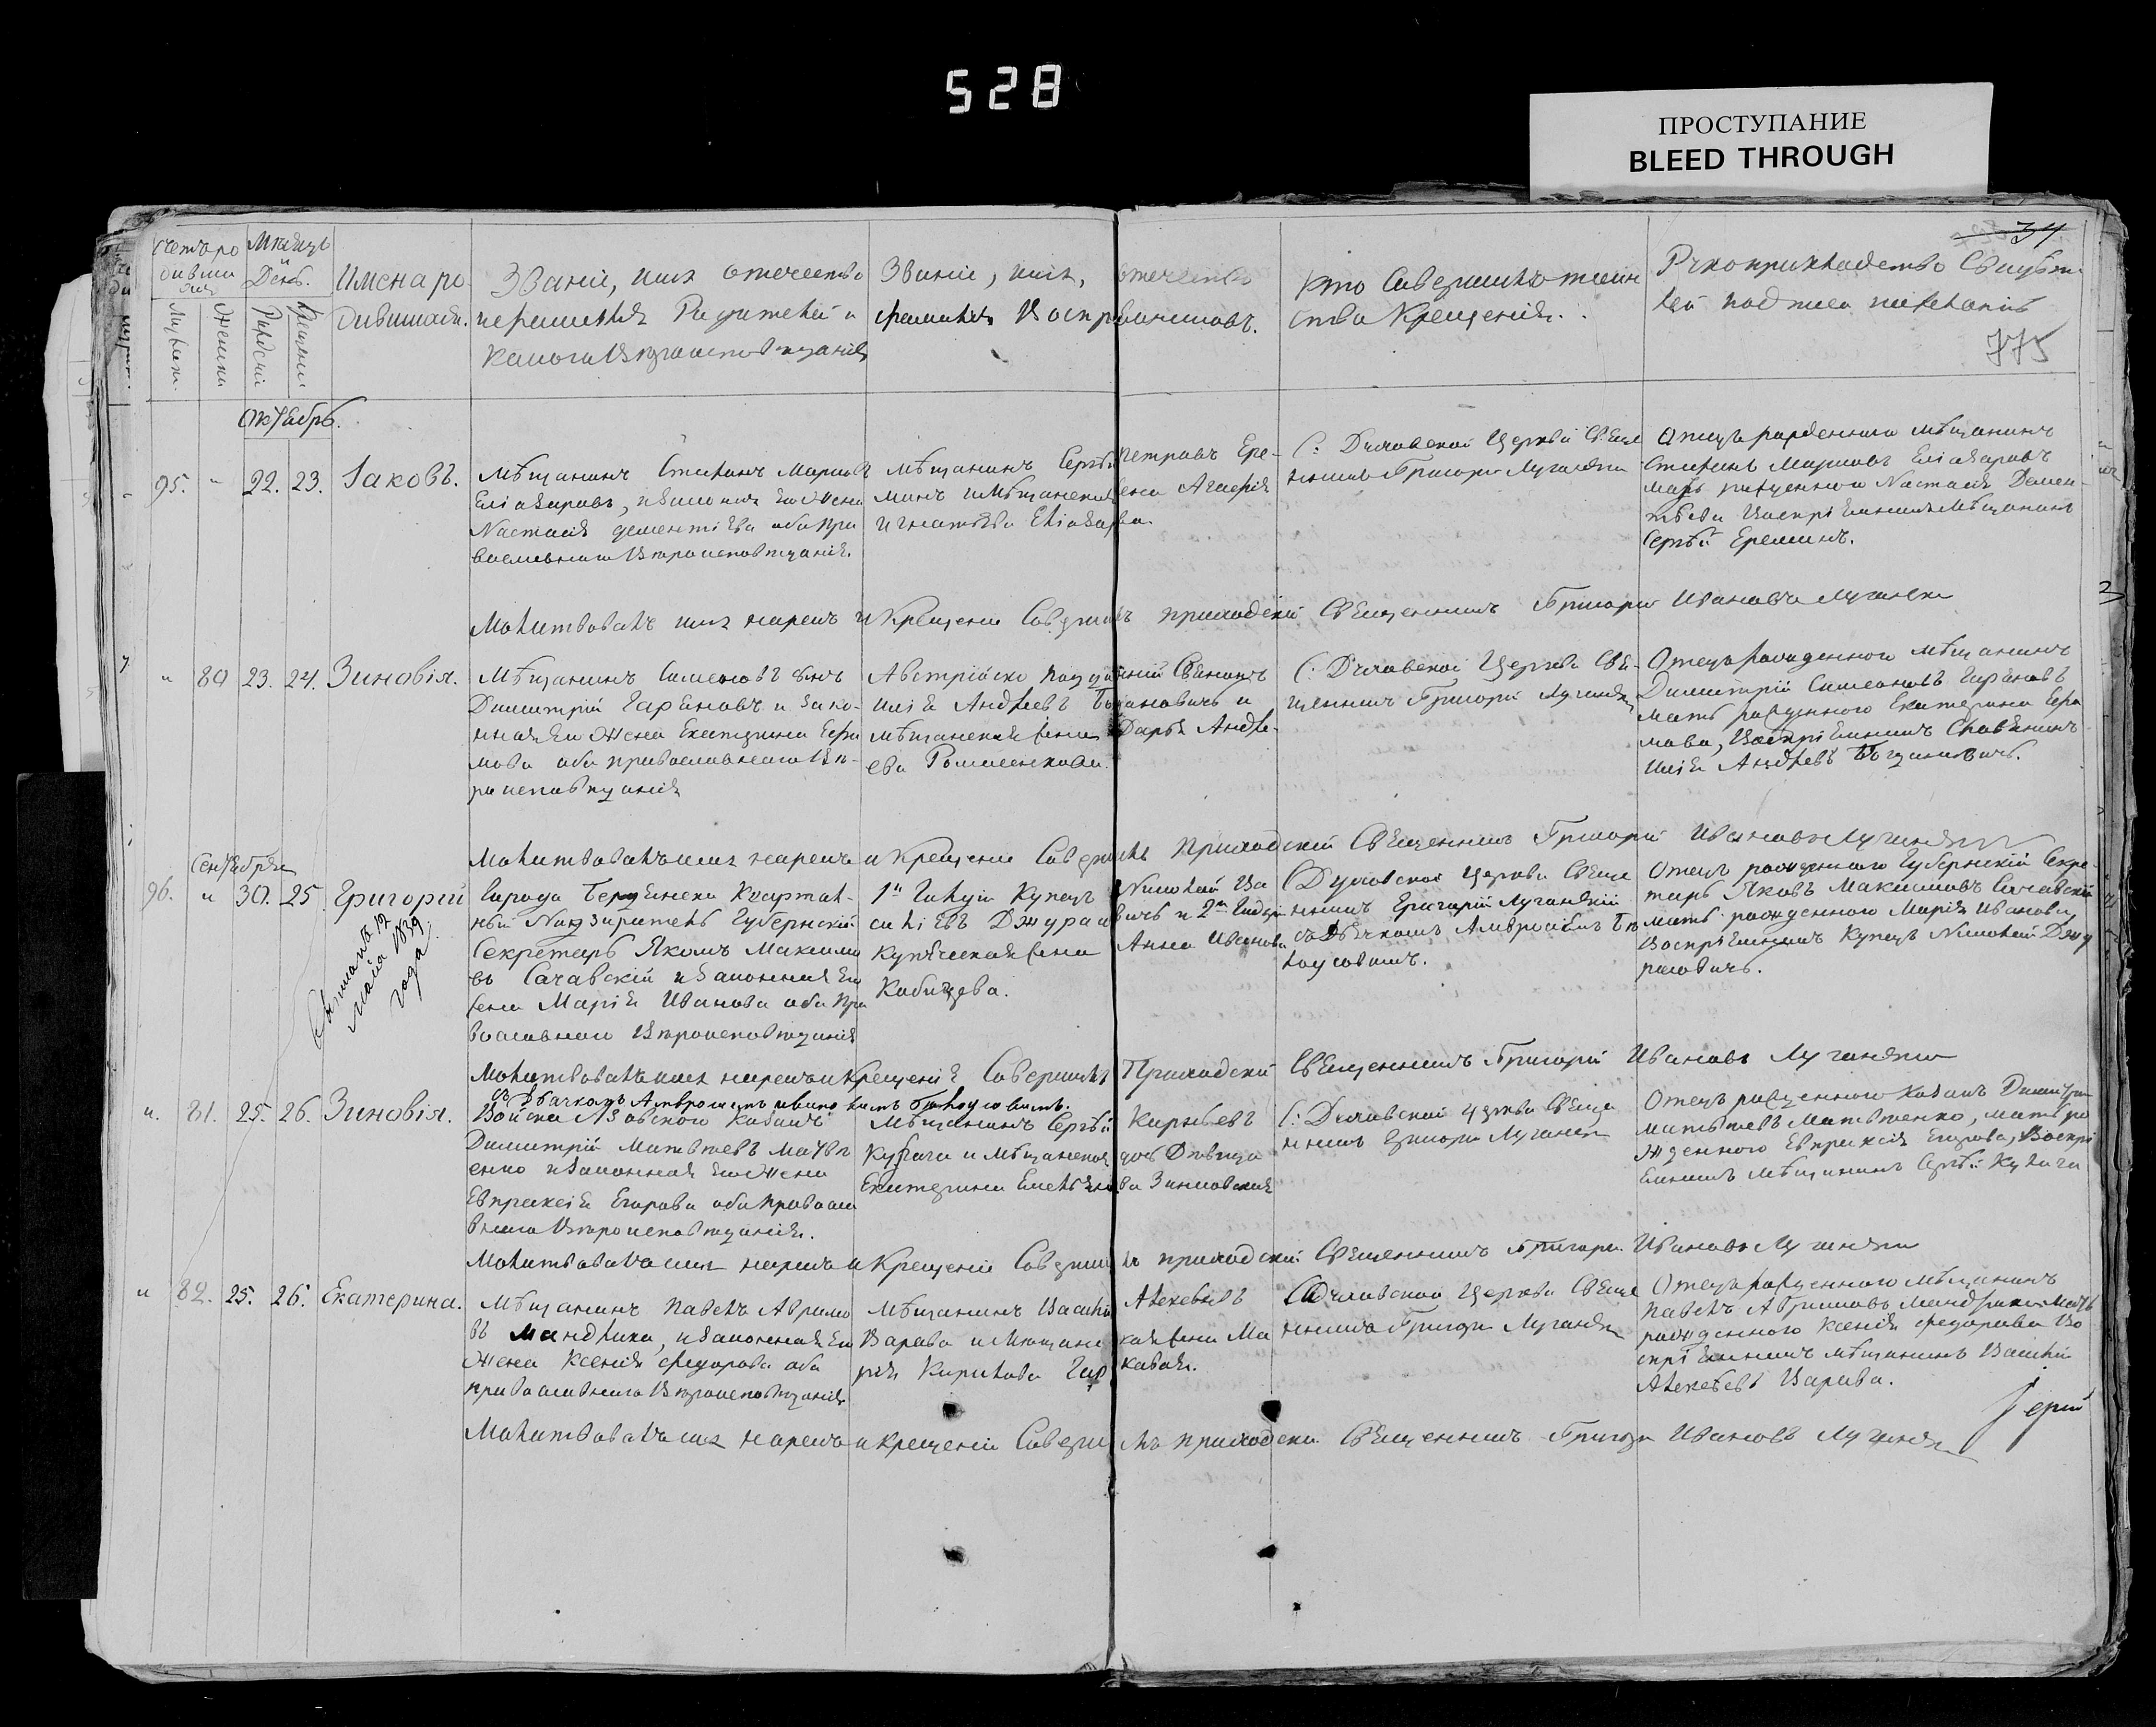 528
ПРОСТУПАНИЕ
BLEED THROUGH
34
775
Счетъ ро
дивши
хся
Мѣсяцъ
и
День.
Имена ро
дившихся.
Званіе, имя отечество
и фамилія Родителей и
какого вѣроисповѣданія
Званіе, имя, отечество
фамилія Воспріемниковъ.
Кто совершалъ таин
ство Крещенія.
Рукоприкладство Свидѣте
лей
Октябрь.
95. " 22. 23. Іаковъ.
Мѣщанинъ Стефанъ Марковъ
Еліазаровъ, и законная его Жена
Настасія Дементіева оба пра
вославнаго вѣроисповѣданія.
Мѣщанинъ Сергѣй Петровъ Ере-
минъ и Мѣщанская жена Агафія
Игнатьева Еліазарова.
С: Духовской Церкви Свяще
нникъ Григорій Лучанскій
Отецъ рожденнаго мѣщанинъ
Стефанъ Марковъ Еліазаровъ
мать рожденнаго Настасія Демен-
тьева Воспріемникъ Мѣщанинъ
Сергѣй Ереминъ.
Молитвовалъ имя нарекъ и Крещеніе Совершилъ приходскій Священникъ Григорій Ивановъ Лучанскій
" 80 23. 24. Зиновія.
Мѣщанинъ Симеоновъ сынъ
Димитрій Гарбновъ и зако-
нная его Жена Екатерина Ефи
мова оба православнаго вѣ-
роисповѣданія
Австрійско подданный Славянинъ
Илія Андреевъ Богдановичъ и
мѣщанская жена Дарья Андре-
ева Романенкова.
С: Духовской Церкви Свя-
щенникъ Григорій Лучанскій
Отецъ рожденнаго мѣщанинъ
Димитрій Симеоновъ
мать рожденного Екатерина Ефи
мова, Воспріемникъ Славянинъ
Илія Андреевъ Богдановичъ.
Молитвовалъ имя нарекъ и Крещеніе Совершилъ Приходскій Священникъ Григорій Ивановъ Лучанскій
Сентября
96. " 30. 25. Григорій
12
маія 1839
года
Города Бердянска Квартал-
ный Надзиратель Губернскій
Секретарь Яковъ Максимо
въ Сачавскій и законная его
жена Марія Иванова оба пра
вославнаго вѣроисповѣданія
1й Гильдіи Купецъ Николай Ва
силіевъ Джураковичъ и 2й Гильдіи
Купѣческая жена Анна Иванова
Кобызева.
С Духовской Церкви Свяще
нникъ Григорій Лучанскій
съ Дьячкомъ Амвросіемъ Бѣ
лоусовымъ.
Отецъ рожденнаго Губернскій Секре-
тарь Яковъ Максимовъ Сачавскій
мать рожденного Марія Иванова
Воспріемникъ Купецъ Николай Джу
раковичъ.
Молитвовалъ имя нарекъ и Крещеніе Совершилъ Приходскій Священникъ Григорій Ивановъ Лучанскій
". 81. 25. 26. Зиновія.
Войска Азовского Козакъ
Димитрій Матвѣевъ Матвѣ
енко и законная его Жена
Евпраксія Егорова оба правосла
внаго вѣроисповѣданія.
Мѣщанинъ Сергѣй Карпѣевъ
и Мѣщанская дочь Дѣвица
Екатерина
С: Духовской Церкви Свяще
нникъ Григорій Лучанскій
Отецъ рожденного Козакъ Димитрій
Матвѣевъ Матвѣенко, мать ро
жденного Евпраксія Егорова, Воспрі
емникъ Мѣщанинъ Сергѣй
Молитвовалъ имя нарекъ и Крещеніе Совершилъ приходскій Священникъ Григорій Ивановъ Лучанскій
" 82. 25. 26. Екатерина.
Мѣщанинъ Павелъ Абрамо
въ Мандрика, и законная его
Жена Ксенія Федорова оба
православнаго вѣроисповѣданія
Мѣщанинъ Василій Алексѣевъ
Варава и Мѣщанская жена Ма
рія Кирилова
С Духовской Церкви Свяще
нникъ Григорій Лучанскій
Отецъ рожденного Мѣщанинъ
Павелъ Абрамовъ Мандрика Мать
рожденного Ксенія Федорова Во
спріемникъ мѣщанинъ Василій
Алексѣевъ Варава.
Молитвовалъ имя нарекъ и Крещеніе Совершилъ приходскій Священникъ Григорій Ивановъ Лучанскій
Іерей